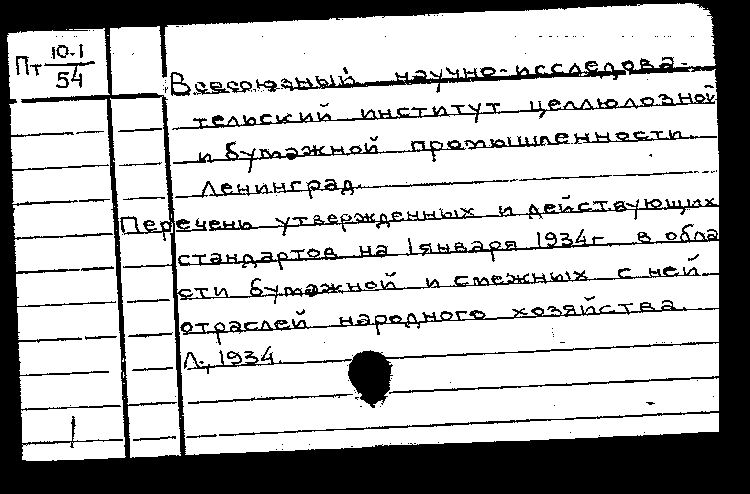 Пт 10.1
54
Всесоюзный научно-исследова-
тельский институт целлюлозной
и бумажной промышленности.
Ленинград.
Перечень утвержденных и действующих
стандартов на 1 января 1934г. в обла
сти бумажной и смежных с ней
отраслей народного хозяйства.
Л., 1934.
1